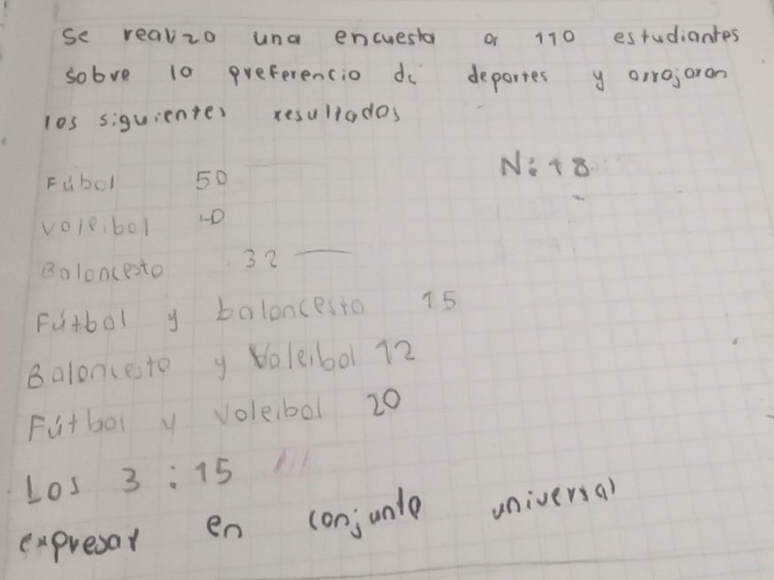 Se realizo una encuesta a 110 estudiantes
sobre la preferencia de deportes y arrojaron
los siguientes resultados
Fubol 50
N: 18
Voleibol 40
Baloncesto 32
Fútbol y baloncesto 15
Baloncesto y Voleibol 12
Fútbol y voleibol 20
Los 3 : 15
expresar en conjunto universal